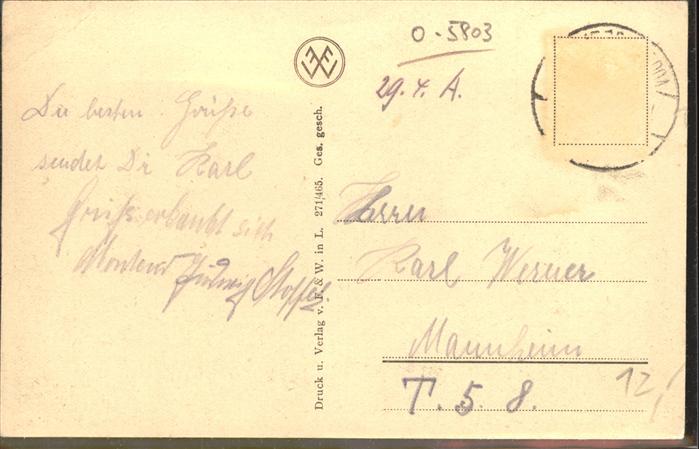 O-5803
29. 4. A.
Die besten Grüße
sendet Dir Karl
Gruß erlaubt sich
Ludwig
Druck u. Verlag v. E. & W. in L. 271/465. Ges. gesch.
Herrn
Karl Werner
Mannheim
T. 5. 8.
12,